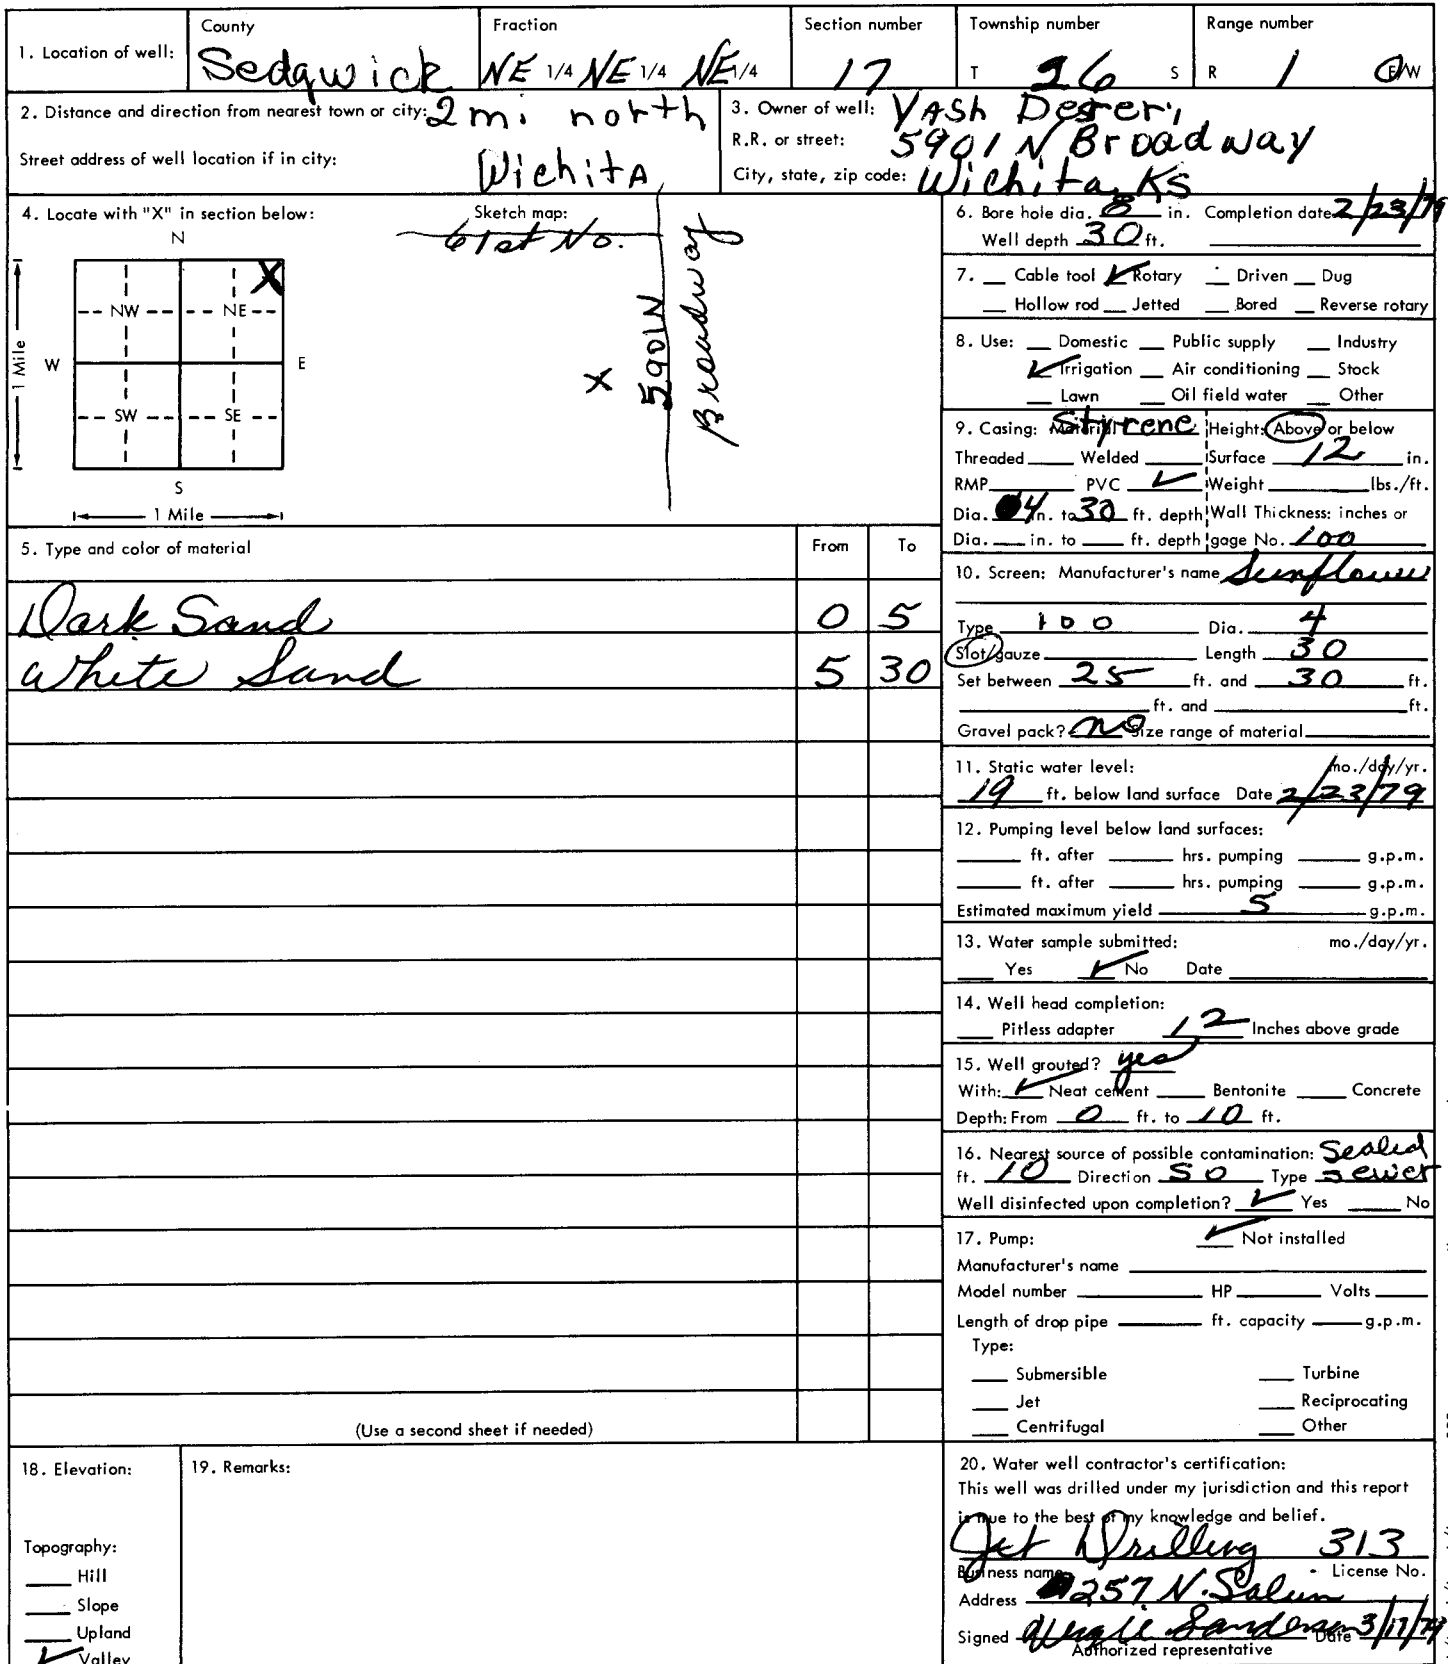 County Fraction Section number Township number Range number
1. Location of well: Sedgwick NE 1/4 NE 1/4 NE 1/4 17 T 26 S R 1 E/W
2. Distance and direction from nearest town or city: 2 mi north
Street address of well location if in city: Wichita
3. Owner of well: Vash
R.R. or street: 5901 N Broadway
City, state, zip code: Wichita, Ks
4. Locate with "X" in section below: Sketch map:
N
61st No.
X
NW NE
W E
1 Mile
SW SE
S
1 Mile
X 5901N Broadway
5. Type and color of material From To
Dark Sand 0 5
White Sand 5 30
(Use a second sheet if needed)
6. Bore hole dia. 8 in. Completion date 2/23/79
Well depth 30 ft.
7. Cable tool ✓ Rotary Driven Dug
Hollow rod Jetted Bored Reverse rotary
8. Use: Domestic Public supply Industry
✓ Irrigation Air conditioning Stock
Lawn Oil field water Other
9. Casing: Material Styrene Height: Above or below
Threaded Welded Surface 12 in.
RMP PVC ✓ Weight lbs./ft.
Dia. 4 in. to 30 ft. depth Wall Thickness: inches or
Dia. in. to ft. depth gage No. 100
10. Screen: Manufacturer's name Sunflower
Type 100 Dia. 4
Slot/gauze Length 30
Set between 25 ft. and 30 ft.
ft. and ft.
Gravel pack? no Size range of material
11. Static water level: mo./day/yr.
19 ft. below land surface Date 2/23/79
12. Pumping level below land surfaces:
ft. after hrs. pumping g.p.m.
ft. after hrs. pumping g.p.m.
Estimated maximum yield 5 g.p.m.
13. Water sample submitted: mo./day/yr.
Yes ✓ No Date
14. Well head completion:
Pitless adapter 12 Inches above grade
15. Well grouted? yes
With: ✓ Neat cement Bentonite Concrete
Depth: From 0 ft. to 10 ft.
16. Nearest source of possible contamination: Sealed
ft. 10 Direction SO Type sewer
Well disinfected upon completion? ✓ Yes No
17. Pump: ✓ Not installed
Manufacturer's name
Model number HP Volts
Length of drop pipe ft. capacity g.p.m.
Type:
Submersible Turbine
Jet Reciprocating
Centrifugal Other
18. Elevation:
Topography:
Hill
Slope
Upland
✓ Valley
19. Remarks:
20. Water well contractor's certification:
This well was drilled under my jurisdiction and this report
is true to the best of my knowledge and belief.
Jet Drilling 313
Business name License No.
Address 257 N.
Signed Date 3/17/79
Authorized representative